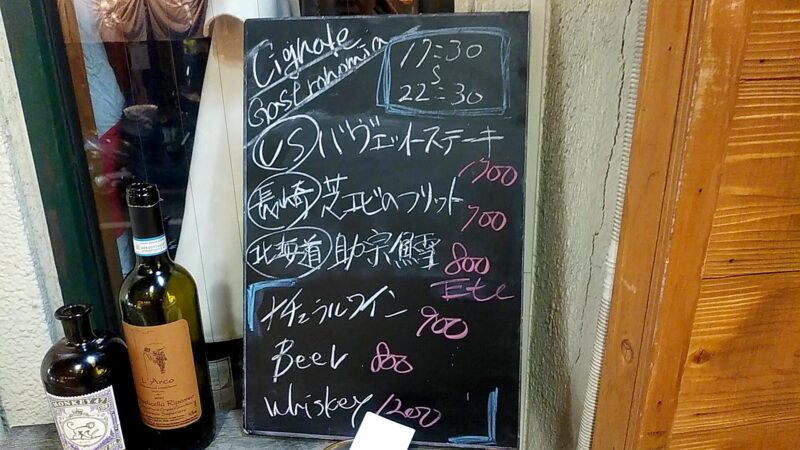 Cignale
Gastronomia
17:30
〜
22:30
US バヴェットステーキ
1700
長崎 芝エビのフリット
700
北海道 助宗鱈
800
Etc
ナチュラルワイン
900
Beer 800
Whiskey 1200
L'Arco